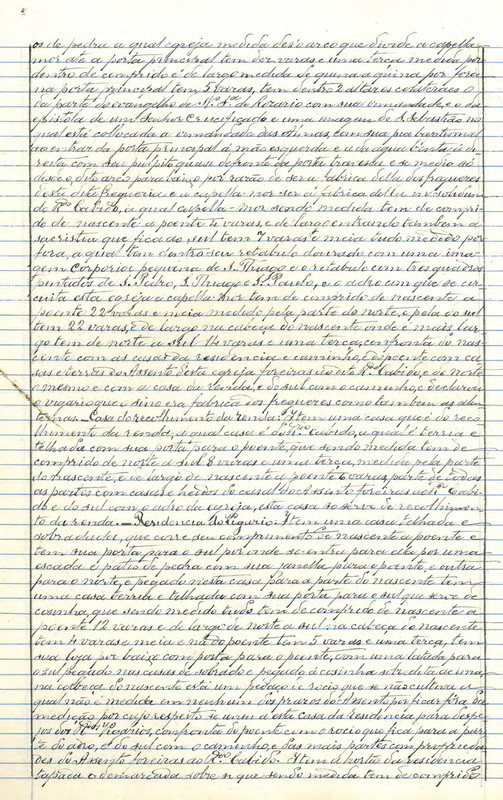 os de pedra a qual egreja medida des'o arco que divide a capella
mor até a porta principal tem dez varas e uma terça medida por
dentro de comprido e de largo medida de quina a quina por fora
na porta principal tem 5 varas, tem dentro 2 altares collateraes o
da parte do evangelho de N.ª S.ª do Rozario com sua irmandade, e o da
epistola de um Senhor Crucificado e uma imagem de S. Sebastião no
qual está collocada a irmandade das Almas, com sua pia baptismal
ao entrar da porta principal á mão esquerda e a da agua benta á di-
reita com seu pulpito quase defronte da porta travessa e se mediu só
desde o dito arco para baixo por razão de ser a fabrica della dos freguezes
desta dita freguezia e a capella-mor ser a fabrica della in solidum
do R.do Cabido, a qual capella-mor sendo medida tem de compri-
do de nascente a poente 4 varas, e de largo entrando tambem a
sacristia que fica do sul tem 7 varas e meia tudo medido por
fora, a qual tem dentro seu retabulo dourado com uma ima-
gem corporea pequena de S. Thiago e o retabulo com tres quadros
pintados de S. Pedro, S. Thiago e S. Paulo, e o adro com que se cir-
cuita esta egreja e capella-mor tem de comprido de nascente a
poente 22 varas e meia medido pela parte do norte, e pela do sul
tem 22 varas, e de largo na cabeça do nascente onde é mais lar-
go tem de norte a sul 14 varas e uma terça, confronta do nas-
cente com as casas da residencia e caminho, e do poente com ca-
sas e terras do Assento desta egreja foreiras ao dito R.do Cabido, e do norte
o mesmo e com a casa da renda, e do sul com o caminho, e declarou
o vigario que o sino era fabrica dos freguezes como tambem as alen-
ternas. Casa do recolhimento da renda: Item uma casa que é do reco-
lhimento da renda, a qual casa é do R.do Cabido, a qual é terria e
telhada com sua porta para o poente, que sendo medida tem de
comprido de norte a sul 8 varas e uma terça, medida pela parte
do nascente, e de largo de nascente a poente 6 varas, parte de todas
as partes com casas e heidos do casal do Assento foreiros ao R.do Cabi-
do e do sul com o adro da egreja, esta casa só serve de recolhimen-
to da renda. — Residencia do Vigario: Item uma casa telhada e
sobradada, que corre seu comprimento de nascente a poente e
tem sua porta para o sul por onde se entra para ella por uma
escada e pateo de pedra com sua janella para o poente, e outra
para o norte, e pegado nesta casa para a parte do nascente tem
uma casa terria e telhada com sua porta para o sul que serve de
cosinha, que sendo medido tudo tem de comprido de nascente a
poente 12 varas e de largo de norte a sul na cabeça do nascente
tem 4 varas e meia e na do poente tem 5 varas e uma terça, tem
sua loja por baixo com porta para o poente, com uma latada para
o sul pegado nas casas de sobrado e pegado á cosinha sobredita e uma,
na cabeça do nascente está um pedaço de rocio que se não cultiva o
qual não é medida em nenhum dos prazos do Assento por ficar fora da
medição por cujo respeito se uniu a esta casa da Residencia para despe-
jos dos R.dos Vigarios, confronta do poente com o rocio que fica para a par-
te do adro, e do sul com o caminho, e das mais partes com proprieda-
des do Assento foreiras ao R.do Cabido. Item a horta da residencia
tapada e demarcada sobre si que sendo medida tem de comprido